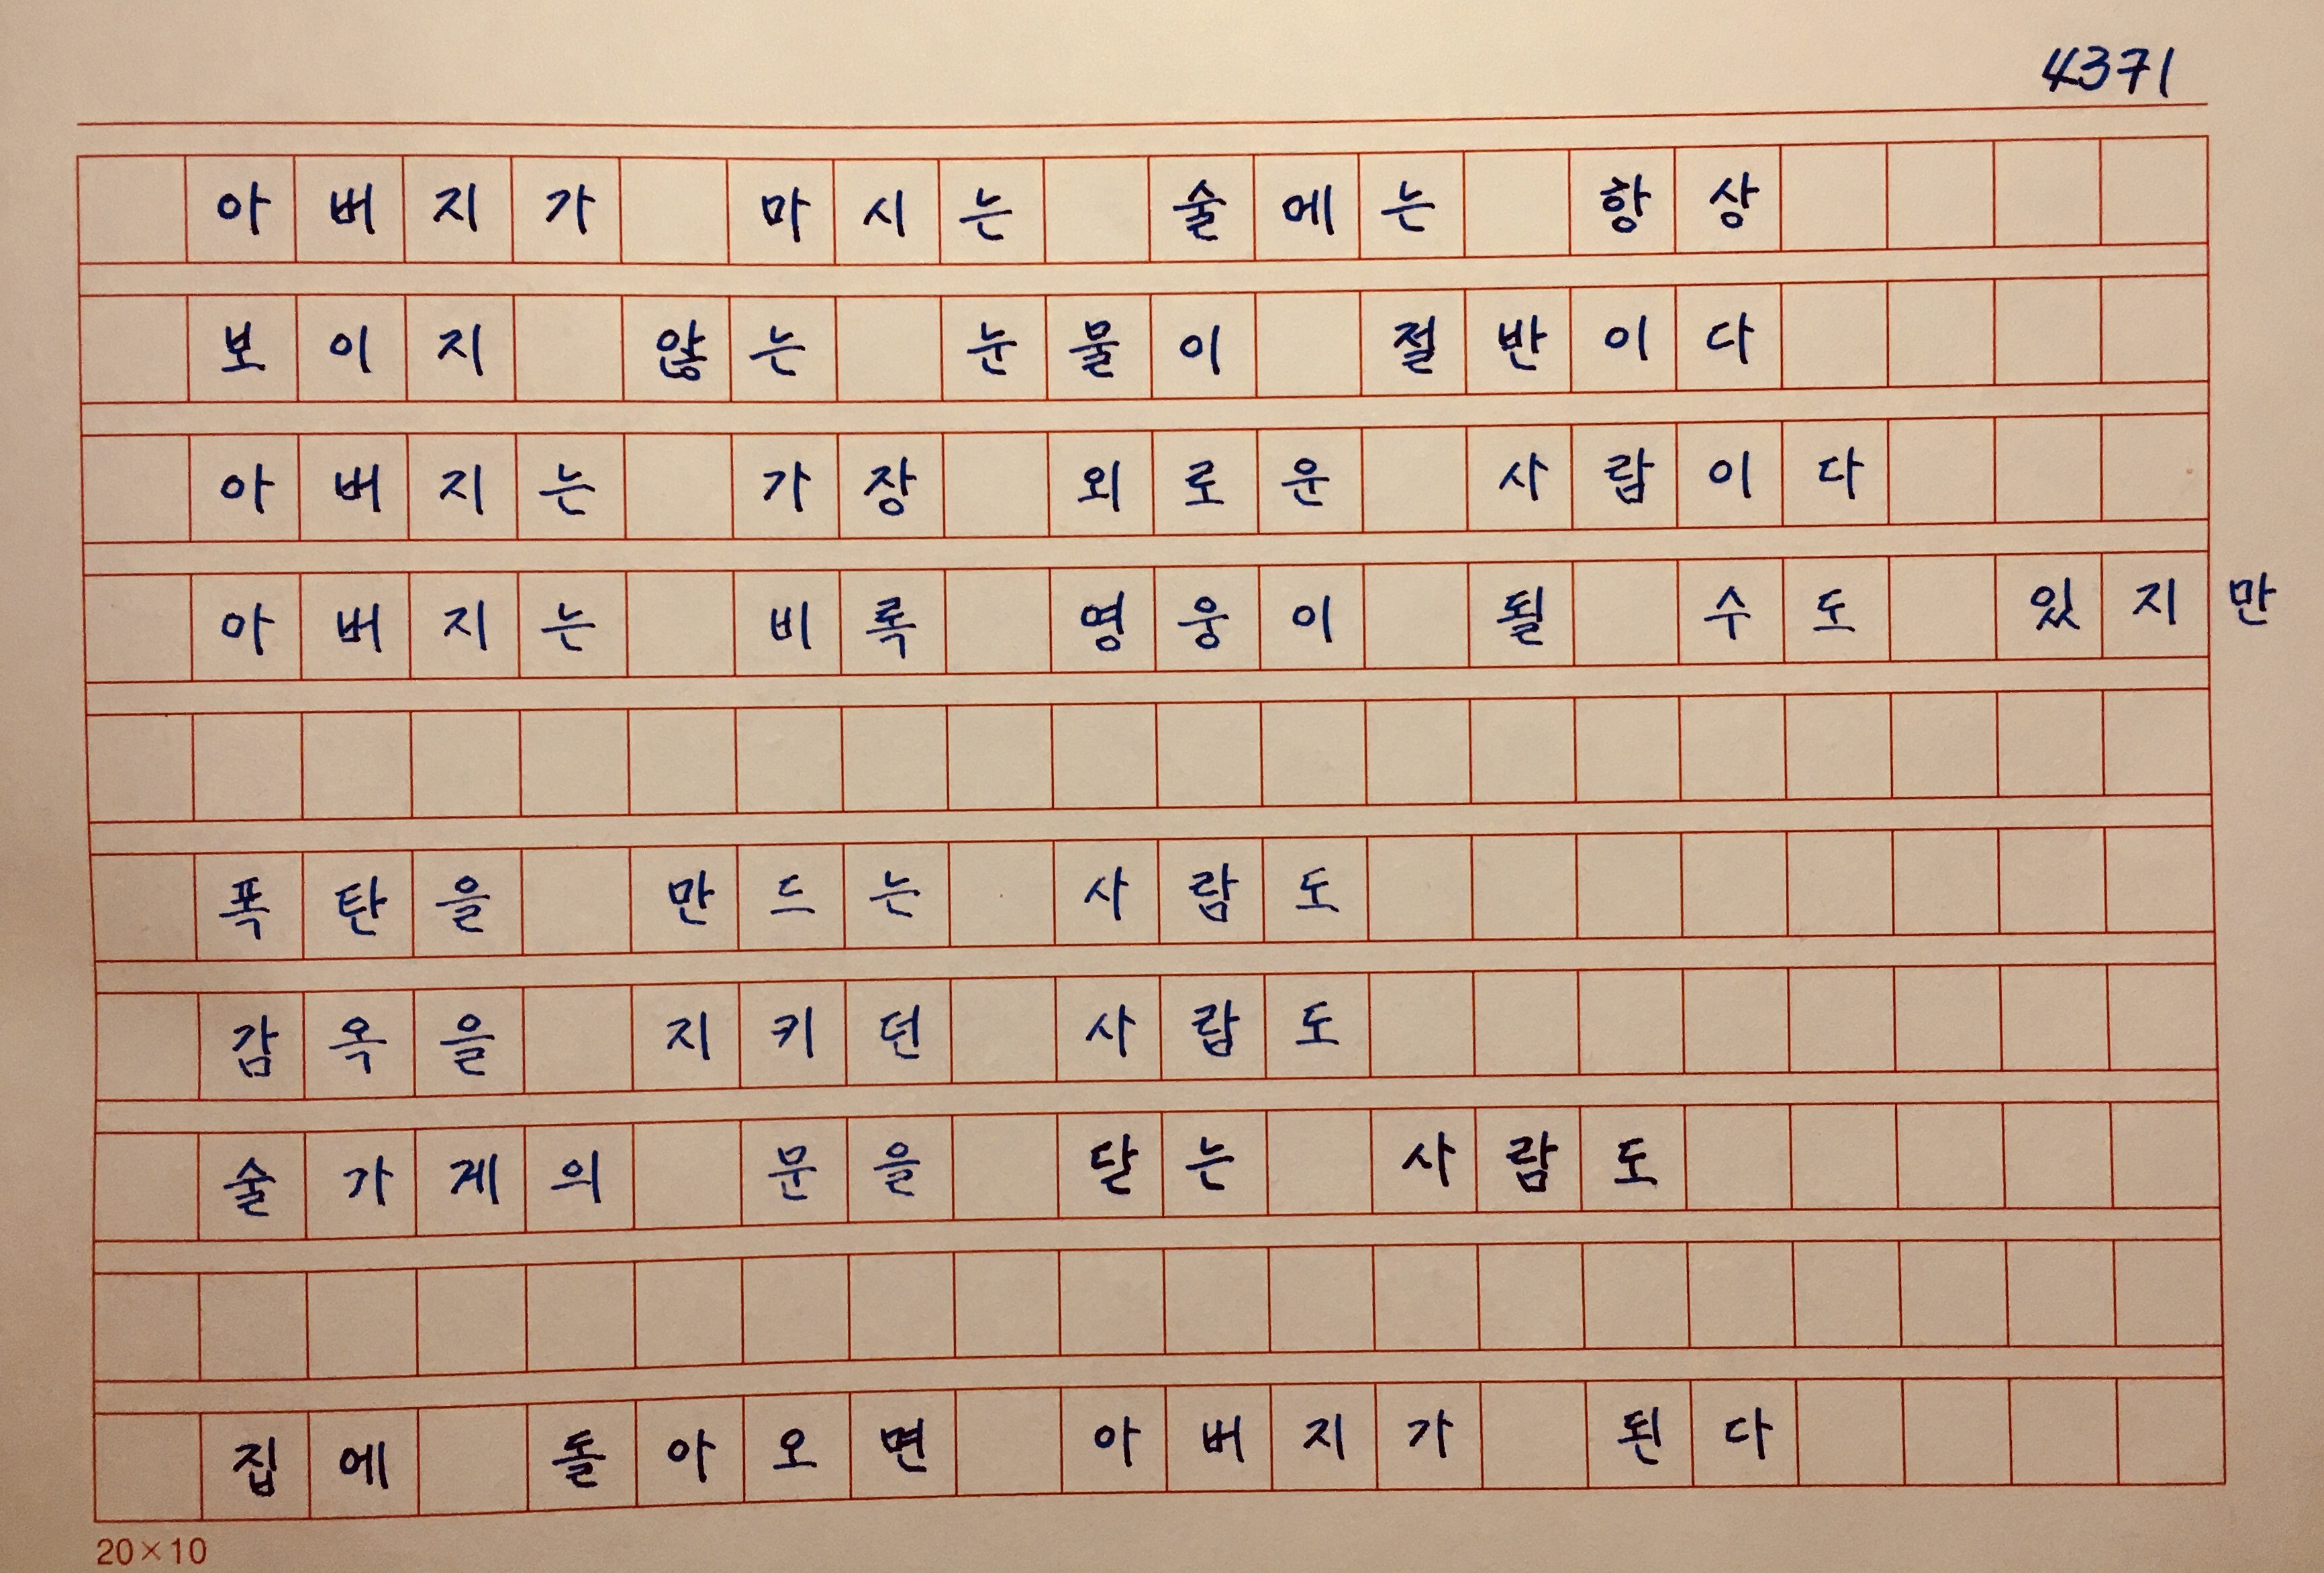 4371
아버지가 마시는 술에는 항상
보이지 않는 눈물이 절반이다
아버지는 가장 외로운 사람이다
아버지는 비록 영웅이 될 수도 있지만
폭탄을 만드는 사람도
감옥을 지키던 사람도
술가게의 문을 닫는 사람도
집에 돌아오면 아버지가 된다
20×10